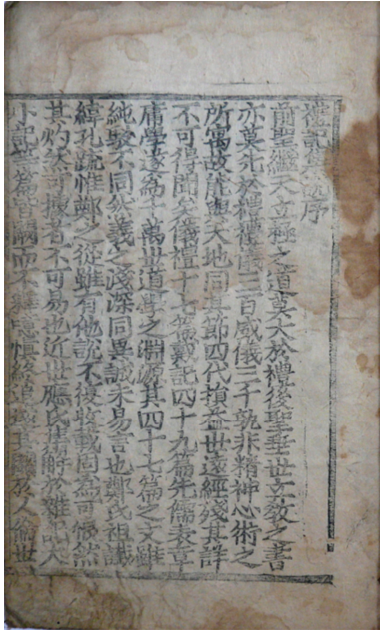 禮記集說序
前聖繼天立極之道莫大於禮後聖垂世立敎之書
亦莫先於禮禮儀三百威儀三千孰非精神心術之
所寓故能與天地同其節四代損益世遠經殘其詳
不可得聞矣儀禮十七篇戴記四十九篇先儒表章
庸學遂爲千萬世道學之淵源其四十七篇之文雖
純駁不同然義之淺深同異誠未易言也鄭氏祖讖
緯孔䟽惟鄭之從雖有他說不復收載固爲可恨然
其灼然可據者不可易也近世應氏集解於雜記大
小記等篇皆闕而不釋噫愼終追遠其關於人倫世